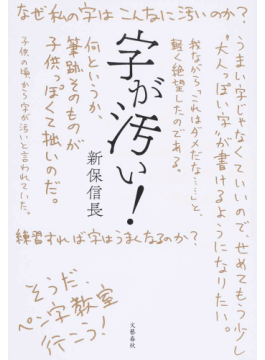 なぜ私の字はこんなに汚いのか?
うまい字じゃなくていいので、せめてもう少し
"大人っぽい字"が書けるようになりたい。
我ながら「これはダメだな……」と、
軽く絶望したのである。
字が汚い!
新保信長
何というか、
筆跡そのものが
子供っぽくて拙いのだ。
子供の頃から字が汚いと言われていた。
練習すれば字はうまくなるのか?
そうだ、
ペン字教室
行こう!
文藝春秋